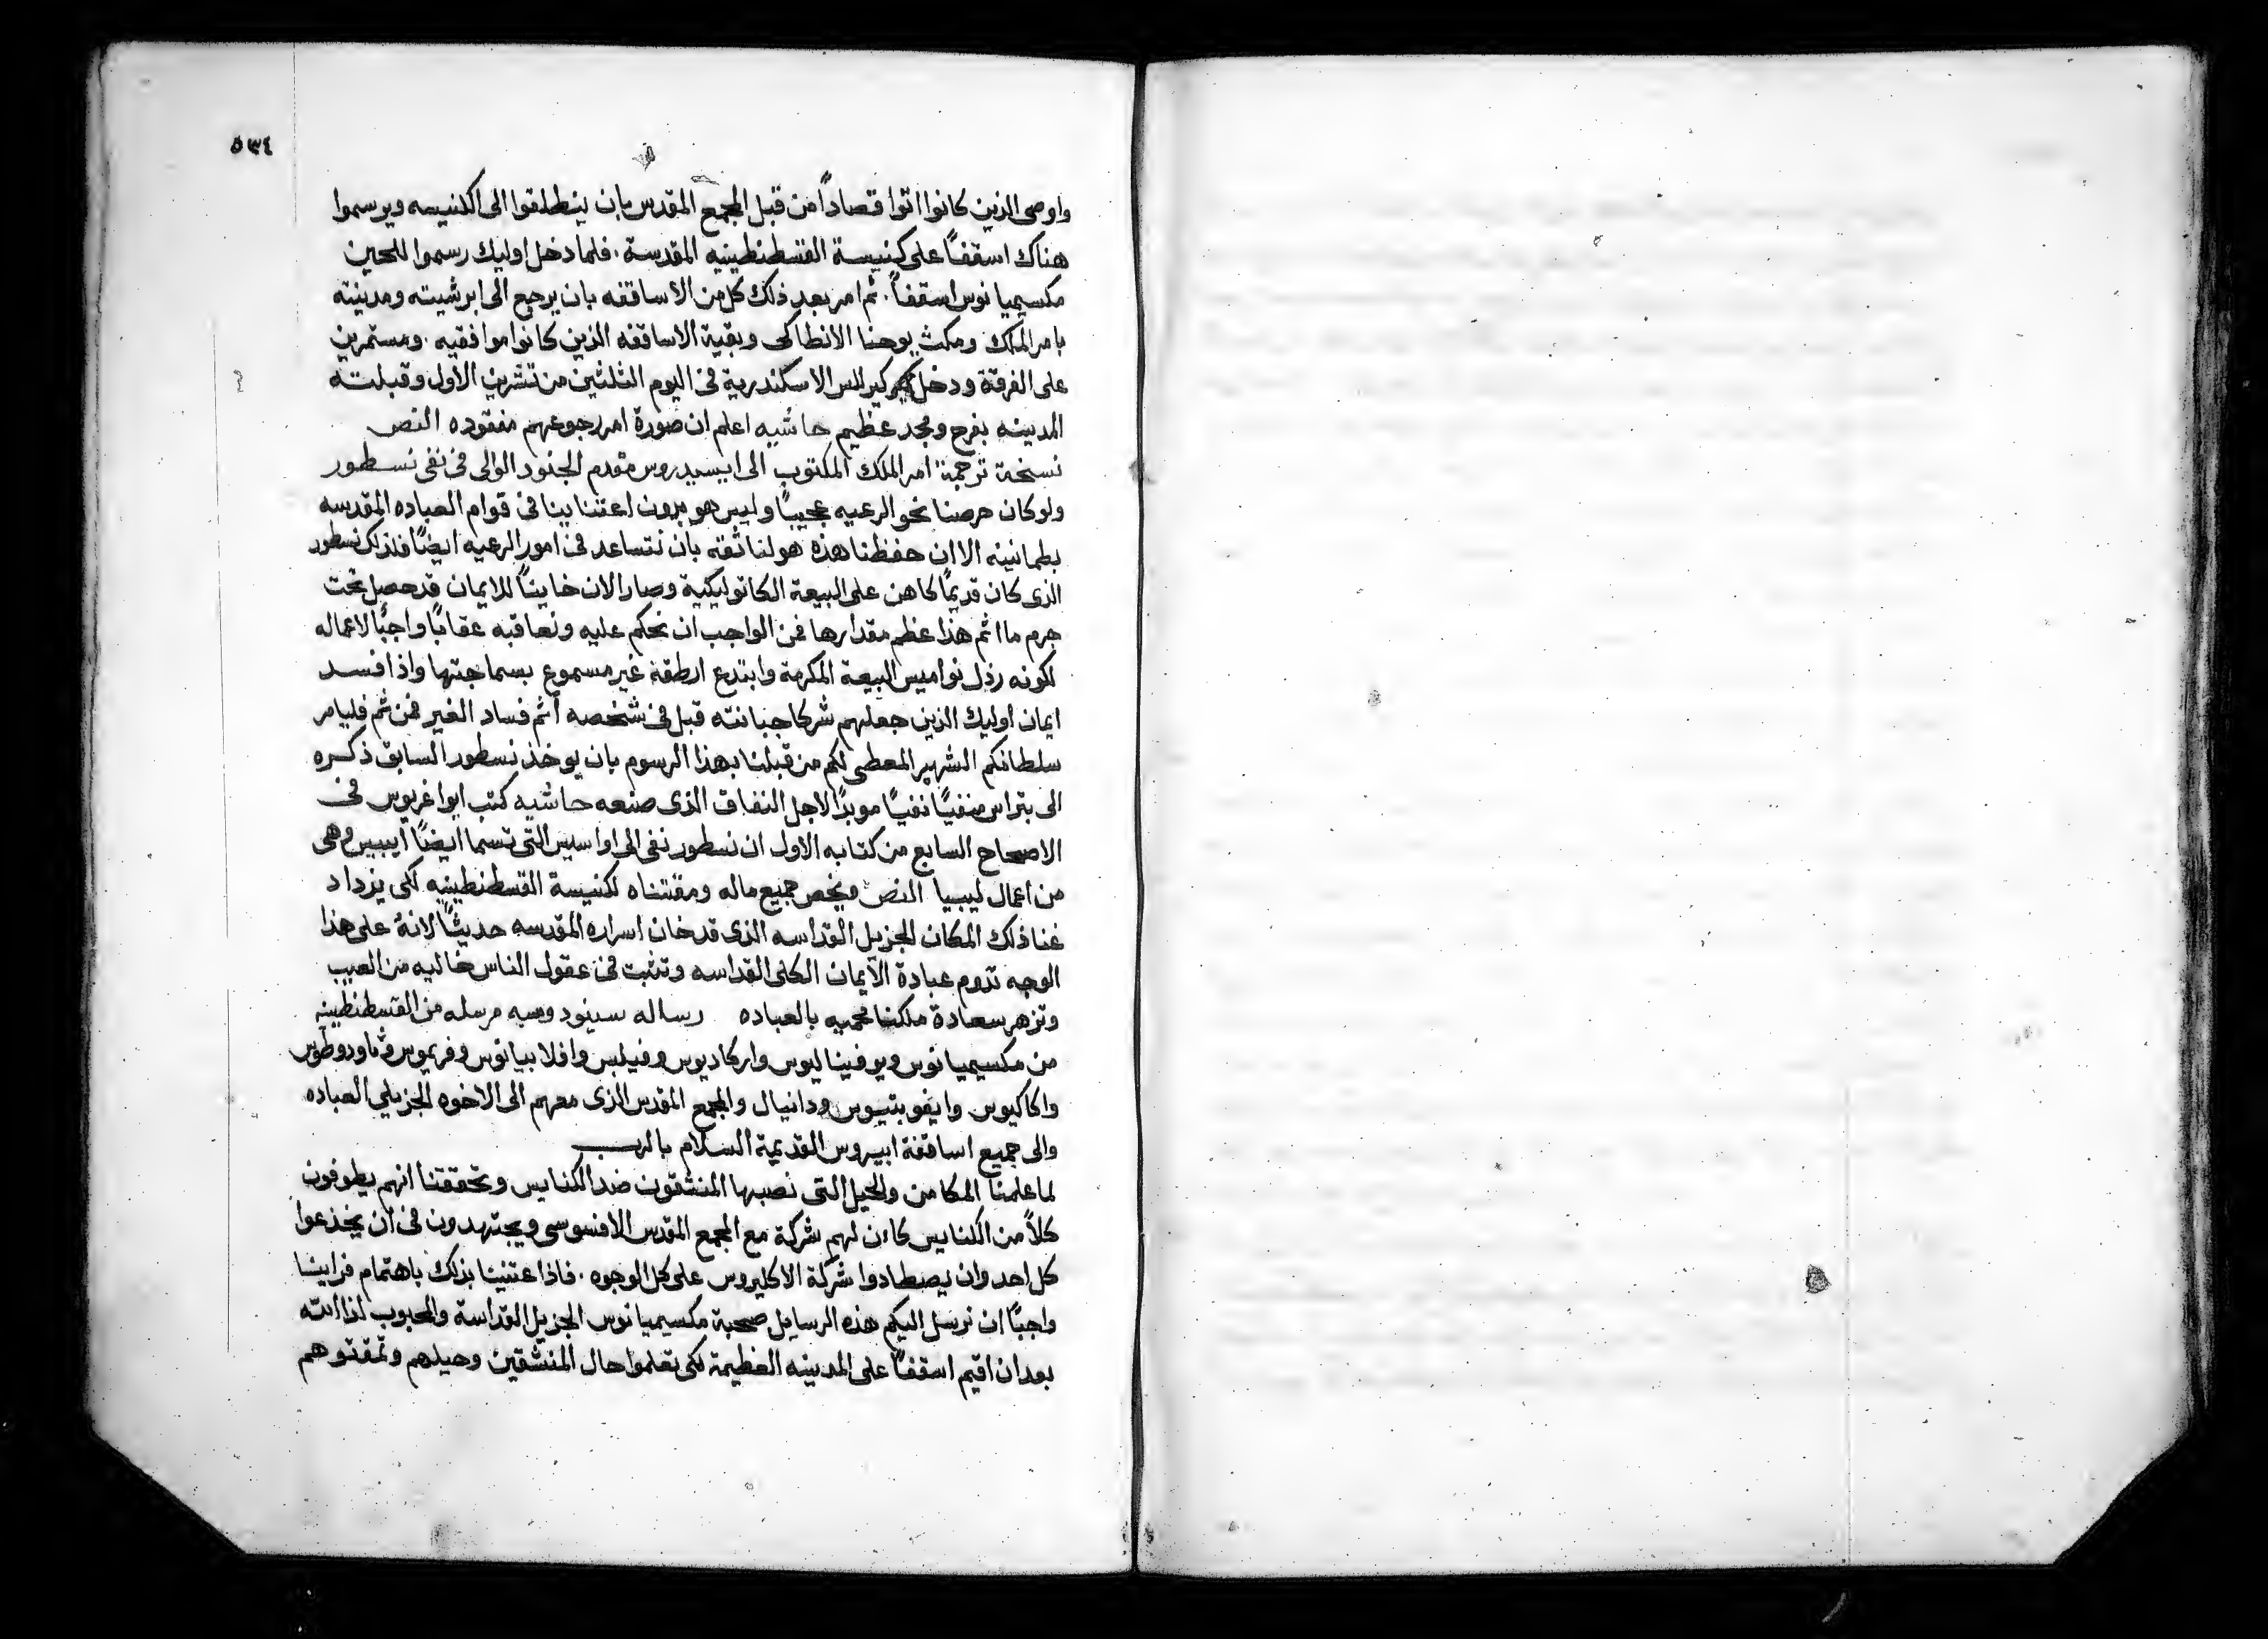 ٥٣٤
واوصى الذين كانوا اتوا قصاداً من قبل المجمع المقدس بان ينطلقوا الى الكنيسه ويرسموا
هناك اسقفاً على كنيسة القسطنطينيه المقدسة. فلما دخل اوليك رسموا للحين
مكسيميانوس اسقفاً. ثم امر بعد ذلك كل من الاساقفه بان يرجع الى ابرشيته ومدينته
بامر الملك ومكث يوحنا الانطاكى وبقية الاساقفه الذين كانوا موافقيه. ومستمرين
على الفرقة ودخل كيرللس الاسكندرية فى اليوم الثلثين من تشرين الاول وقبلته
المدينه بفرح ومجد عظيم حاشيه اعلم ان صورة امر رجوعهم مفقوده النص
نسخة ترجمة امر الملك المكتوب الى ايسيدروس مقدم الجنود الوالى فى نفى نسطور
ولو كان حرصنا نحو الرعيه عجيباً وليس هو بدون اعتنا بنا فى قوام العباده المقدسه
بطمانينه الا ان حفظنا هذه هو لنا ثقه بان نتساعد فى امور الرعيه ايضاً فلذلك نسطور
الذى كان قديماً كاهن على البيعة الكاتوليكية وصار الان خايناً للايمان قد حصل تحت
جرم مااثم هذا عظم مقدارها فمن الواجب ان نحكم عليه ونعاقبه عقاباً واجباً لاعماله
لكونه رذل نواميس البيعة المكرمة وابتدع ارطقة غير مسموع بسماجتها واذ افسد
ايمان اوليك الذين جعلهم شركا جبانته قبل فى شخصه اثم فساد الغير فمن ثم فليامر
سلطانكم الشهير المعطى لكم من قبلنا بهذا الرسوم بان يوخذ نسطور السابق ذكره
الى بتراس منفيًا نفيًا موبدًا لاجل النفاق الذى صنعه حاشيه كتب ايواغريوس فى
الاصحاح السابع من كتابه الاول ان نسطور نفى الى اواسيس التى تسما ايضاً ايبيس وهى
من اعمال ليبيا النص ويخص جميع ماله ومقتناه لكنيسة القسطنطينيه لكى يزداد
غنا ذلك المكان الجزيل القداسه الذى قد خان اسراره المقدسه حديثاً لانهُ على هذا
الوجه تدوم عبادة الايمان الكلى القداسه وتثبت فى عقول الناس خاليه من العيب
وتزهر سعادة ملكنا محميه بالعباده رساله سينودوسيه مرسله من القسطنطينيه
من مكسيميانوس ويوفيناليوس واركاديوس وفيلبس وافلابيانوس وفريموس وثاودوطوس
واكاكيوس وايفوبتيوس ودانيال والمجمع المقدس الذى معهم الى الاخوه الجزيلي العباده
والى جميع اساقفة ابيروس القديمة السلام بالرب
لما علمنا المكامن والحيل التى نصبها المنشقون ضد الكنايس وتحققنا انهم يطوفون
كلاً من الكنايس كاٸن لهم شركة مع المجمع المقدس الافسوسى ويجتهدون فى ان يخدعوا
كل احد وان يصطادوا شركة الاكليروس على كل الوجوه. فاذ اعتنينا بذلك باهتمام فراينا
واجباً ان نرسل اليكم هذه الرسايل صحبة مكسيميانوس الجزيل القداسة والمحبوب لذا الله
بعد ان اقيم اسقفاً على المدينه العظيمة لكى تعلموا حال المنشقين وحيلهم وتمقتوهم